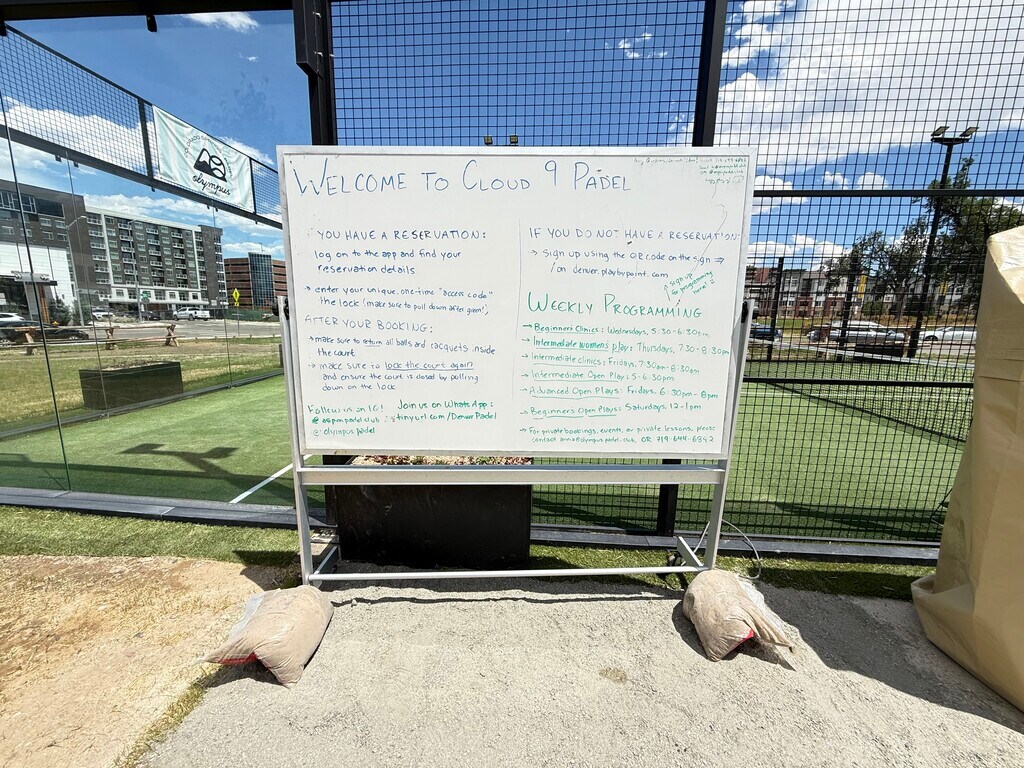 WELCOME TO CLOUD 9 PADEL
olympus
YOU HAVE A RESERVATION:
log on to the app and find your
reservation details
→ enter your unique, one-time "access code"
the lock (make sure to pull down after green!)
AFTER YOUR BOOKING:
→ make sure to return all balls and racquets inside
the court
→ make sure to lock the court again
and ensure the court is closed by pulling
down on the lock
Follow us on IG!
@aspenpadelclub
@olympuspadel
Join us on WhatsApp:
tinyurl.com/DenverPadel
IF YOU DO NOT HAVE A RESERVATION:
→ Sign up using the QR code on the sign ⇒
/on denver.playbypoint.com
sign up
for programming
here!
WEEKLY PROGRAMMING
→ Beginners Clinics: Wednesdays, 5:30-6:30pm
→ Intermediate womens play: Thursdays, 7:30-8:30pm
→ Intermediate clinics: Fridays, 7:30am-8:30am
→ Intermediate Open Play: 5-6:30pm
→ Advanced Open Plays: Fridays, 6:30pm-8pm
→ Beginners Open Plays: Saturdays, 12-1pm
→ For private bookings, events, or private lessons, please
contact anna@olympus padel.club, OR 719-644-6342